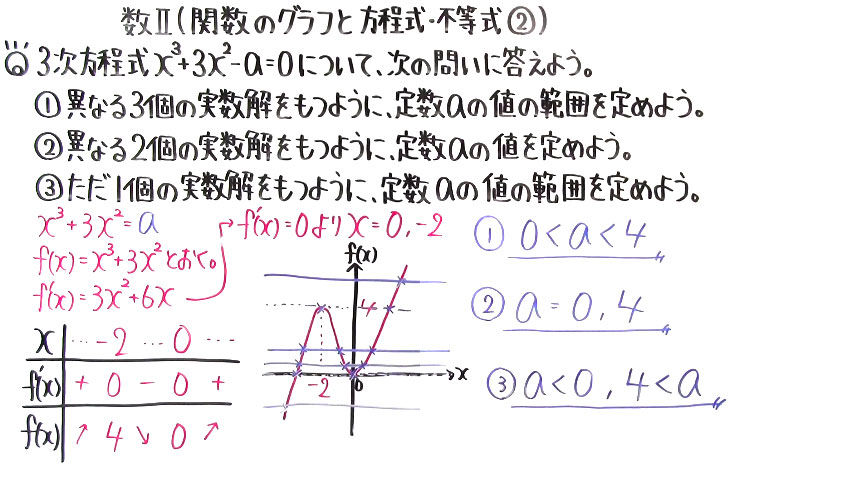 数Ⅱ(関数のグラフと方程式・不等式②)
3次方程式x³+3x²-a=0について、次の問いに答えよう。
①異なる3個の実数解をもつように、定数aの値の範囲を定めよう。
②異なる2個の実数解をもつように、定数aの値を定めよう。
③ただ1個の実数解をもつように、定数aの値の範囲を定めよう。
x³+3x²=a
f(x)=x³+3x²とおく。
f'(x)=3x²+6x
f'(x)=0よりx=0,-2
x … -2 … 0 …
f'(x) + 0 - 0 +
f(x) ↗ 4 ↘ 0 ↗
f(x)
4
-2
0
x
① 0<a<4
② a=0,4
③ a<0,4<a